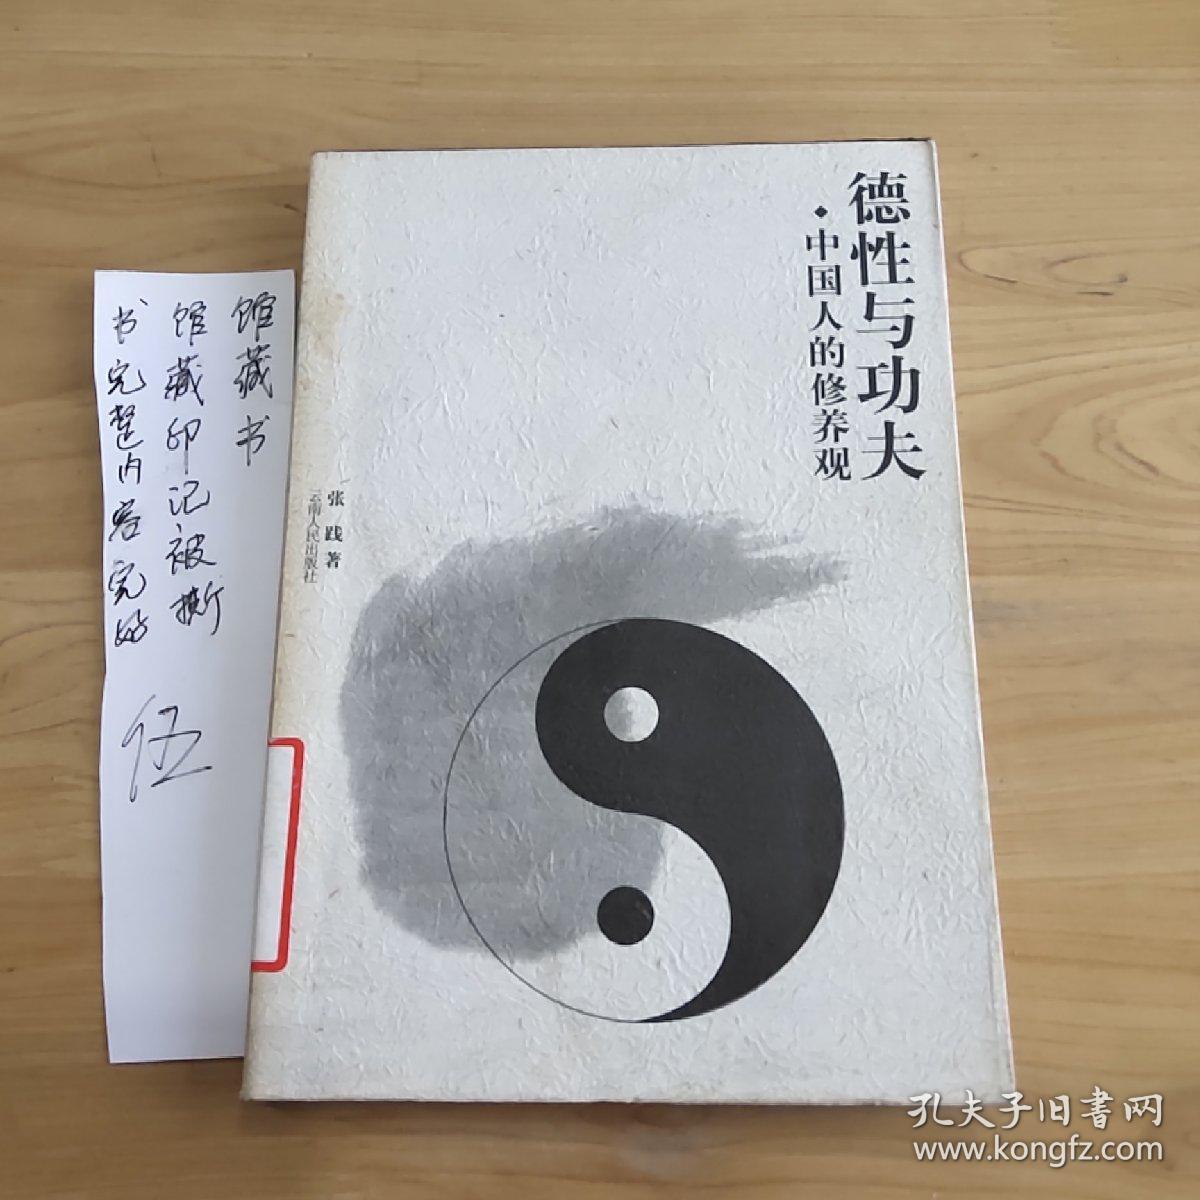 德性与功夫
·中国人的修养观
张践著
云南人民出版社
馆藏书
馆藏印记被撕
书完整内容完好
伍
孔夫子旧書网
www.kongfz.com